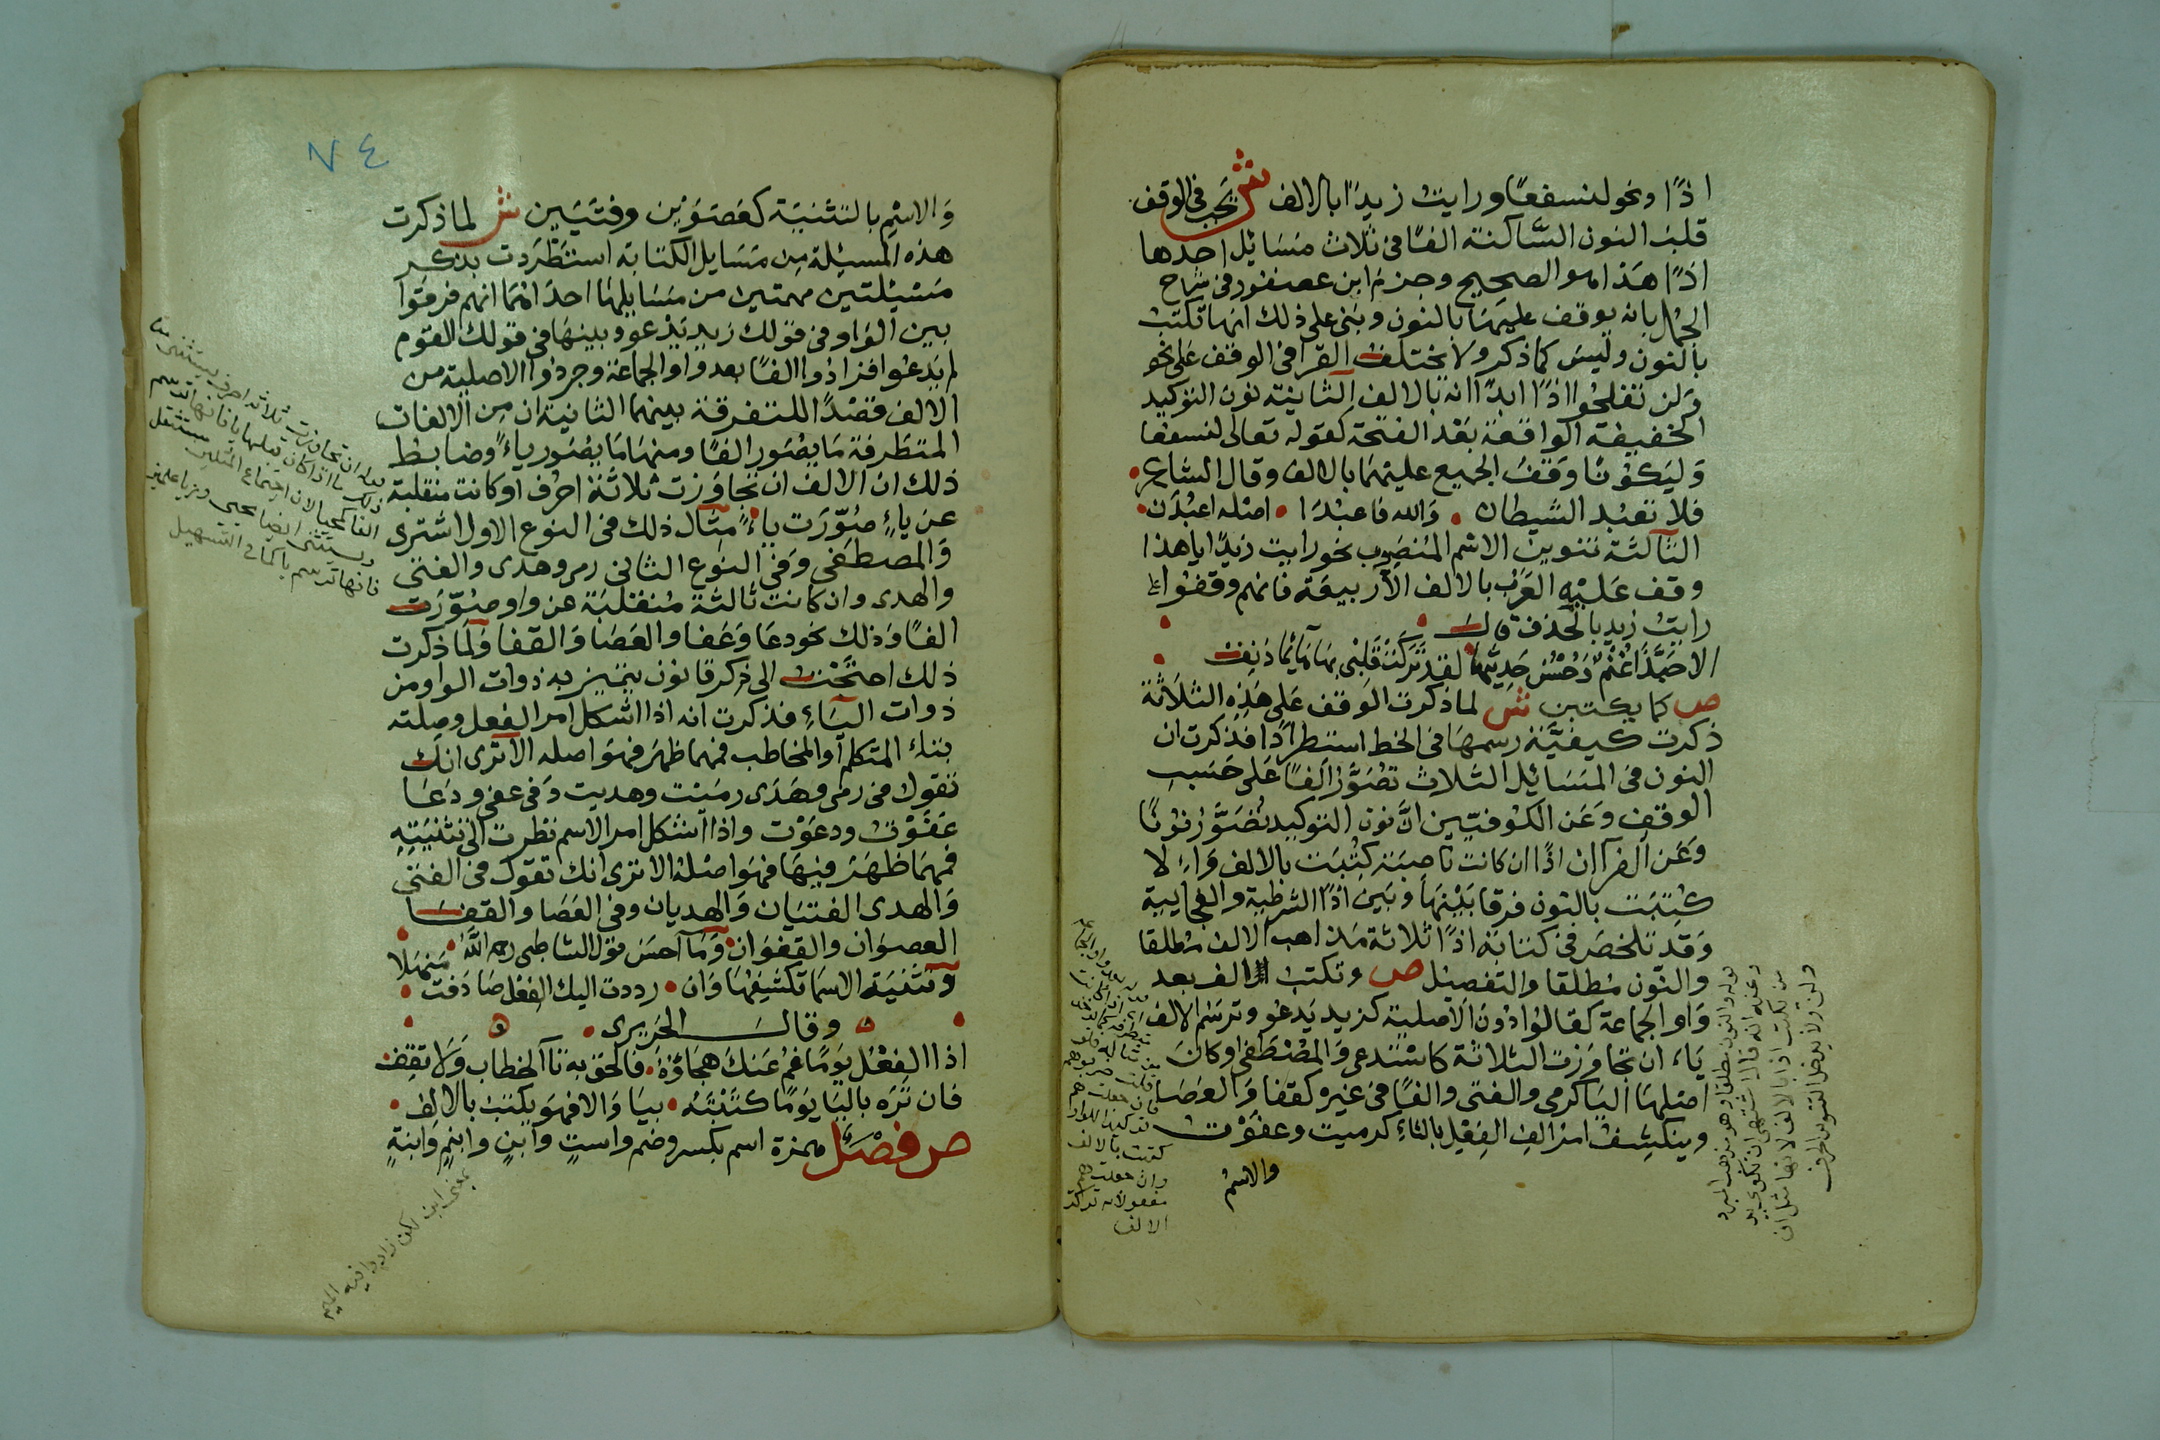 اذًا ونحو لنسفعًا ورايت زيدًا بالالف ش يجب في الوقف
قلب النون الساكنة الفًا في ثلاث مسايل احدها
اذًا هذا هو الصحيح وجزم ابن عصفور في شرح
الجمل بانه يوقف عليها بالنون وبنى على ذلك انها تكتب
بالنون وليس كما ذكر ولا يختلف القرا في الوقف على نحو
ولن تفلحوا اذًا ابدًا انه بالالف الثانية نون التوكيد
الخفيفة الواقعة بعد الفتحة كقوله تعالى لنسفعا
وليكونًا وقف الجميع عليهما بالالف وقال الشاعر
فلا تعبد الشيطان والله فاعبدا اصله اعبدن
الثالثة تنوين الاسم المنصوب نحو رايت زيدًا يا هذا
وقف عليه العرب بالالف الا ربيعة فانهم وقفوا
رايت زيد بالحذف قال
الا حبذا غنم وحسن حديثها لقد تركت قلبي بها هايما دنف
ص كما يكتبن ش لما ذكرت الوقف على هذه الثلاثة
ذكرت كيفية رسمها في الخط استطرادًا فذكرت ان
النون في المسايل الثلاث تصور الفًا على حسب
الوقف وعن الكوفيين ان نون التوكيد تصور نونًا
وعن الفرا ان اذًا ان كانت ناصبة كتبت بالالف والا
كتبت بالنون فرقا بينها وبين اذا الشرطية والفجايية
وقد تلخص في كتابة اذًا ثلاثة مذاهب الالف مطلقا
والنون مطلقا والتفصيل ص وتكتب الالف بعد
واو الجماعة كقالوا دون الاصلية كزيد يدعو وترسم الالف
ياء ان تجاوزت الثلاثة كاستدعى والمصطفى او كان
اصلها اليا كرمى والفتى والفًا في غيره كقفا والعصا
وينكشف امر الف الفعل بالتاء كرميت وعفوت
والاسم
قوله والنون مطلقا وهو مذهب المبرد
وعنه انه قال اشتهي ان تكوى يد
من يكتب اذا بالالف لانها مثل ان
ولن ولا يدخل التنوين الحرف
كتبت بالالف
وان جعلت هم
الالف
٧٤
والاسم بالتثنية كعصوين وفتيين ش لما ذكرت
هذه المسيلة من مسايل الكتابة استطردت بذكر
مسيلتين مهمتين من مسايلها احداهما انهم فرقوا
بين الواو في قولك زيد يدعو وبينها في قولك القوم
لم يدعوا فزادوا الفًا بعد واو الجماعة وجردوا الاصلية من
الالف قصدًا للتفرقة بينهما الثانية ان من الالفات
المتطرفة ما يصور الفًا ومنها ما يصور ياء وضابط
ذلك ان الالف ان تجاوزت ثلاثة احرف او كانت منقلبة
عن ياء صورت ياءً مثال ذلك في النوع الاول استرى
والمصطفى وفي النوع الثاني رمى وهدى والفتى
والهدى وان كانت ثالثة منقلبة عن واو صورت
الفًا وذلك نحو دعا وعفا والعصا والقفا ولما ذكرت
ذلك احتجت الى ذكر قانون يتميز به ذوات الواو من
ذوات الياء فذكرت انه اذا اشكل امر الفعل وصلته
بتاء المتكلم او المخاطب فمهما ظهر فهو اصله الا ترى انك
تقول في رمى وهدى رميت وهديت وفي عفى ودعا
عفوت ودعوت واذا اشكل امر الاسم نظرت الى تثنيته
فمهما ظهر فيها فهو اصله الا ترى انك تقول في الفتى
والهدى الفتيان والهديان وفي العصا والقفا
العصوان والقفوان وما احسن قول الشاطبي رحمه الله
وتثنية الاسما تكشفها وان رددت اليك الفعل صادفت منهلا
وقال الحريري
اذا الفعل يومًا غم عنك هجاؤه فالحق به تا الخطاب ولا تقف
فان تره باليا يومًا كتبته بيا والا فهو يكتب بالالف
ص فصل همزة اسم بكسر وضم واست وابن وابنم وابنة
قوله ان تجاوزت ثلاثة احرف يستثنى من
ذلك ما اذا كان قبلها يا فانها ترسم
الفا كحيا لان اجتماع المثلين مستثقل
ويستثنى ايضا يحيى وريا علمين
فانها ترسم يا كما في التسهيل
بمعنى ابن لكن زادوا فيه الميم